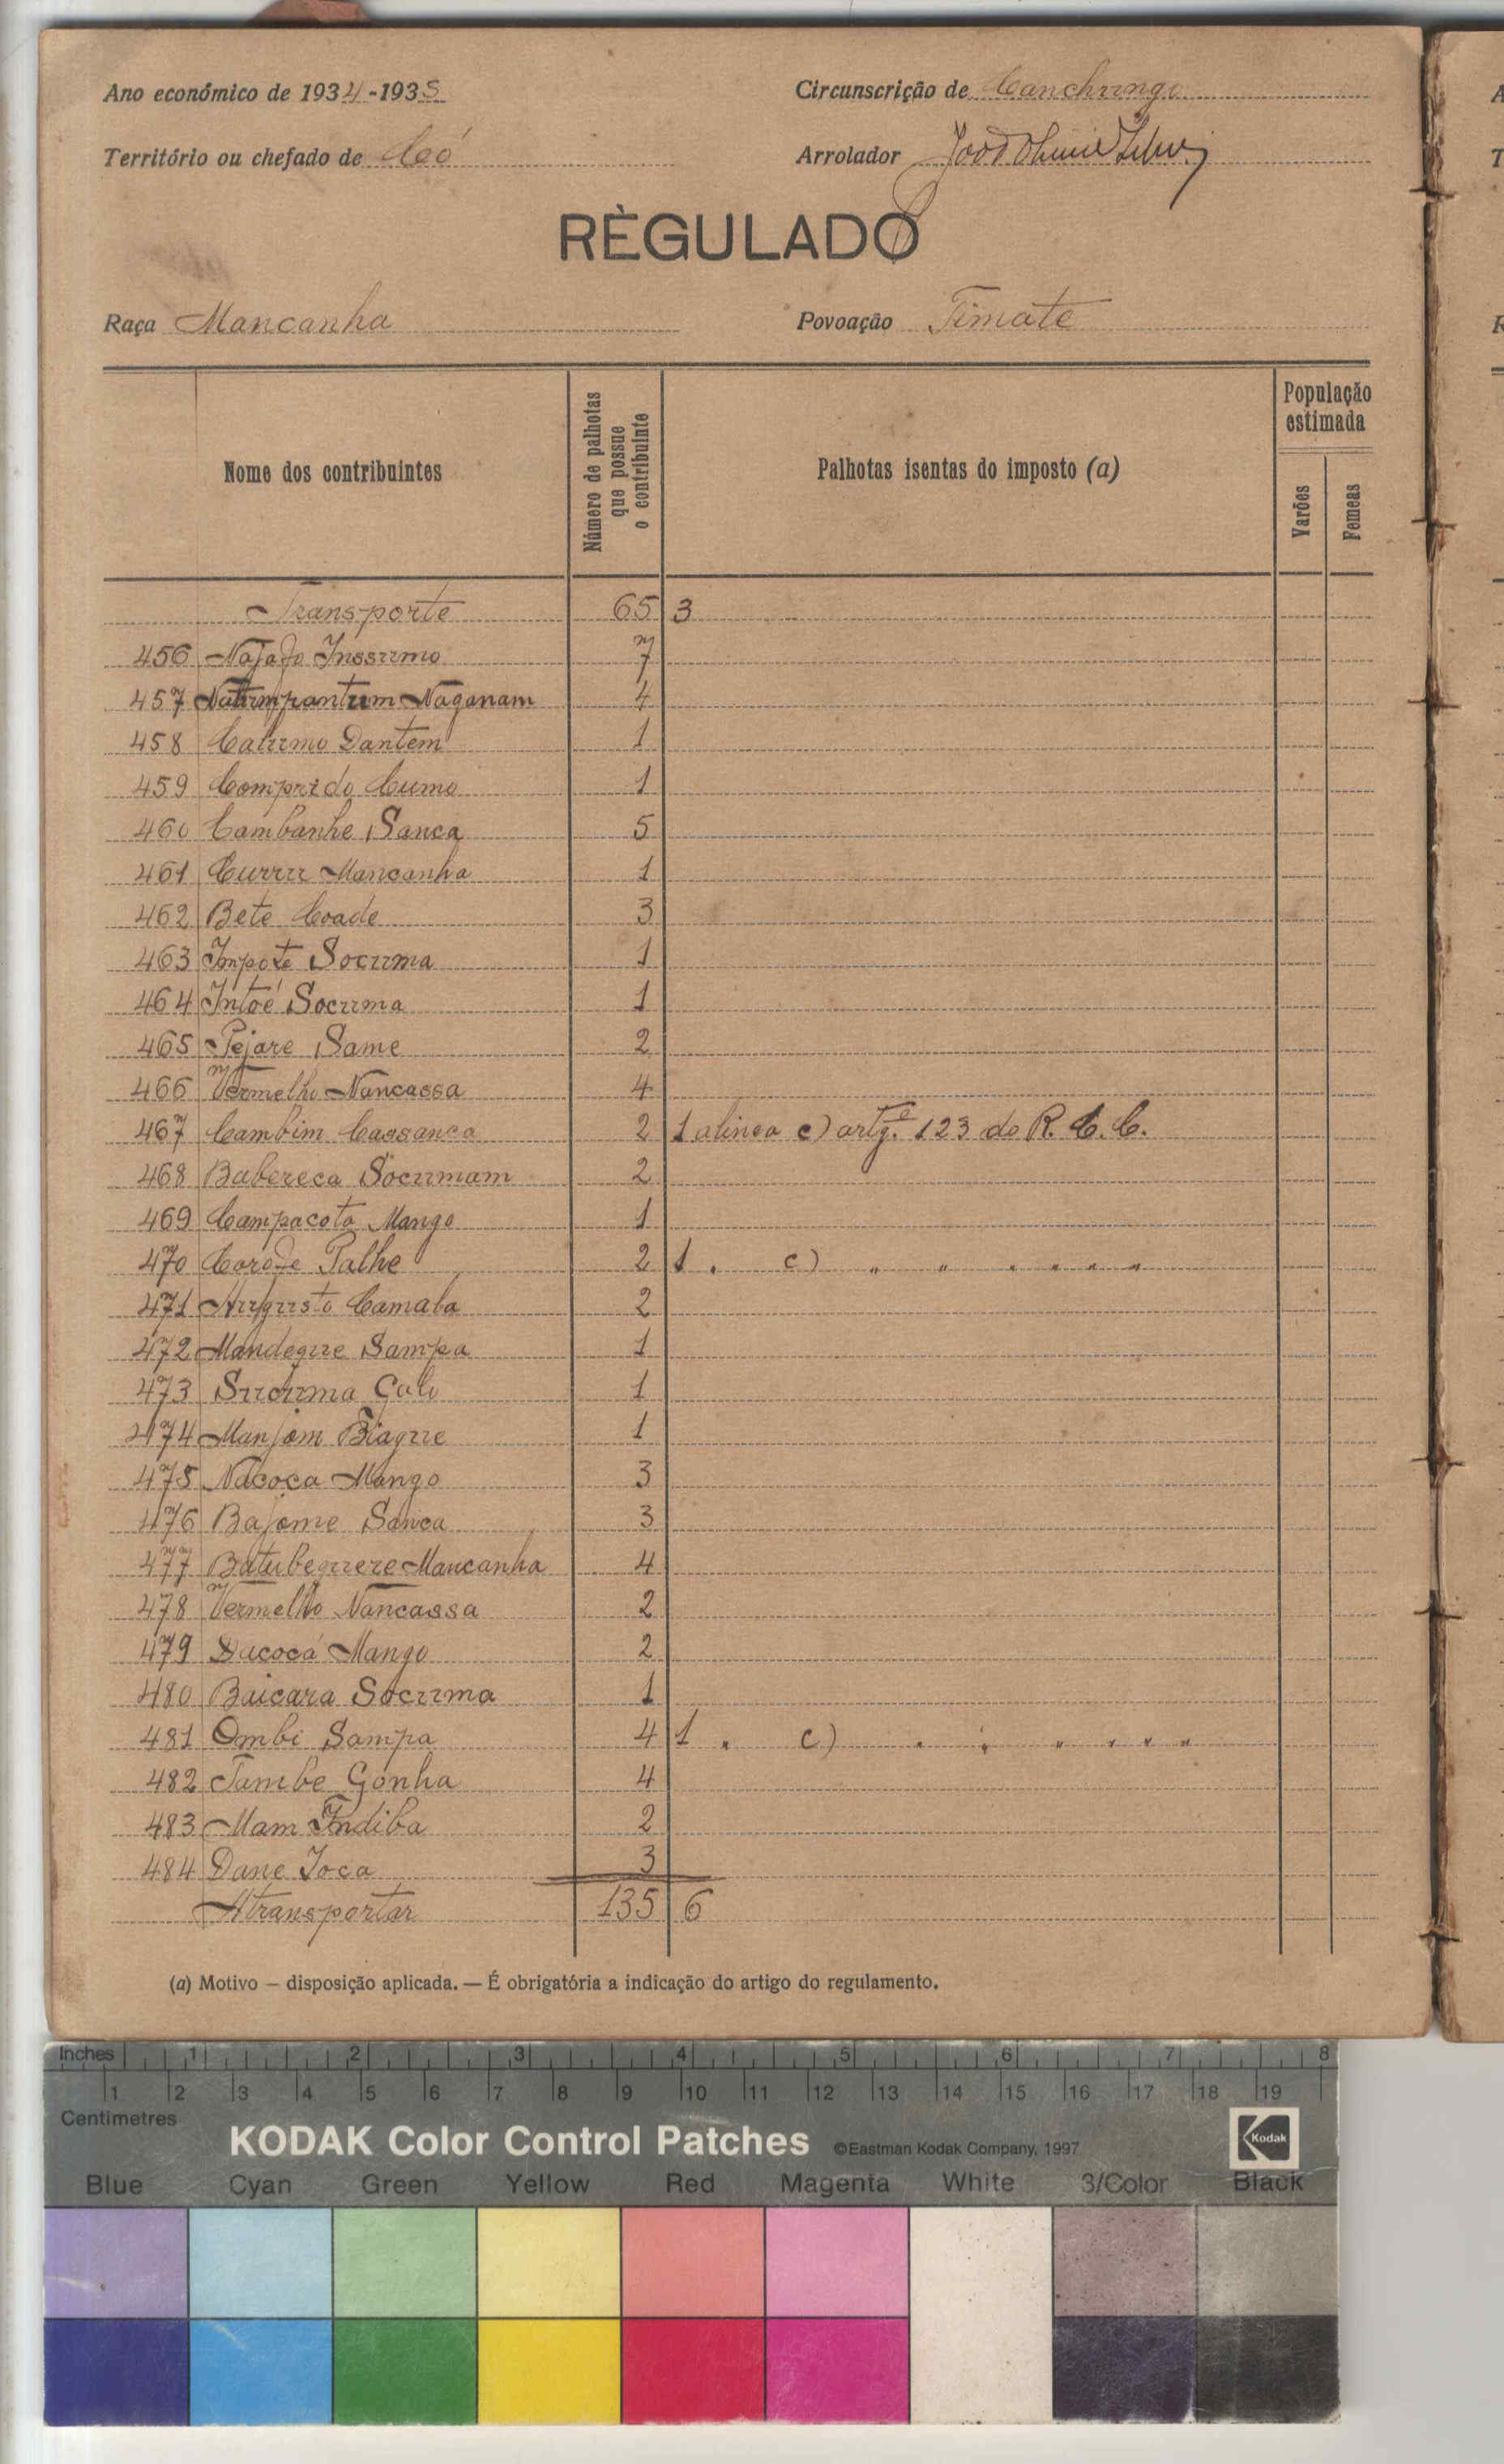 Ano económico de 1934-1935
Circunscrição de Canchungo
Território ou chefado de Có
Arrolador
RÈGULADO
Raça Mancanha
Povoação Timate
Nome dos contribuintes
Número de palhotas que possue o contribuinte
Palhotas isentas do imposto (a)
População estimada
Varões
Femeas
Transporte 65 3
456 Inssumo 7
457 Naganam 4
458 Calumo Dantem 1
459 Comprido Cumo 1
460 Cambanhe Sanca 5
461 Mancanha 1
462 Bete Coade 3
463 Impote Socuma 1
464 Intoé Socuma 1
465 Pejare Same 2
466 Vermelho Nancassa 4
467 Cambim Cassanca 2 1 alinea c) artg.º 123 do R. C. C.
468 Babereca Socumam 2
469 Campacota Mango 1
470 Palhe 2 1 " c) " " " " " "
471 Augusto Camala 2
472 Mandegue Sampa 1
473 Sucuma Calo 1
474 Manjam Biague 1
475 Nacoca Mango 3
476 Bajome Sanca 3
477 Batubequere Mancanha 4
478 Vermelho Nancassa 2
479 Dacocá Mango 2
480 Baicara Socuma 1
481 Ombi Sampa 4 1 " c) " " " " " "
482 Tambe Gonha 4
483 Mam Indiba 2
484 Dane Joca 3
A transportar 135 6
(a) Motivo — disposição aplicada. — É obrigatória a indicação do artigo do regulamento.
Inches 1 2 3 4 5 6 7 8
1 2 3 4 5 6 7 8 9 10 11 12 13 14 15 16 17 18 19
Centimetres
KODAK Color Control Patches ©Eastman Kodak Company, 1997 Kodak
Blue Cyan Green Yellow Red Magenta White 3/Color Black